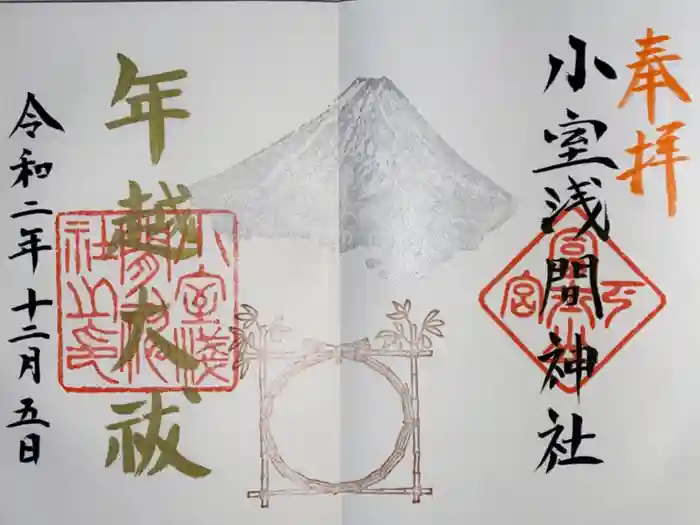 奉拝
小室浅間神社
年越大祓
令和二年十二月五日
小室浅間神社之印